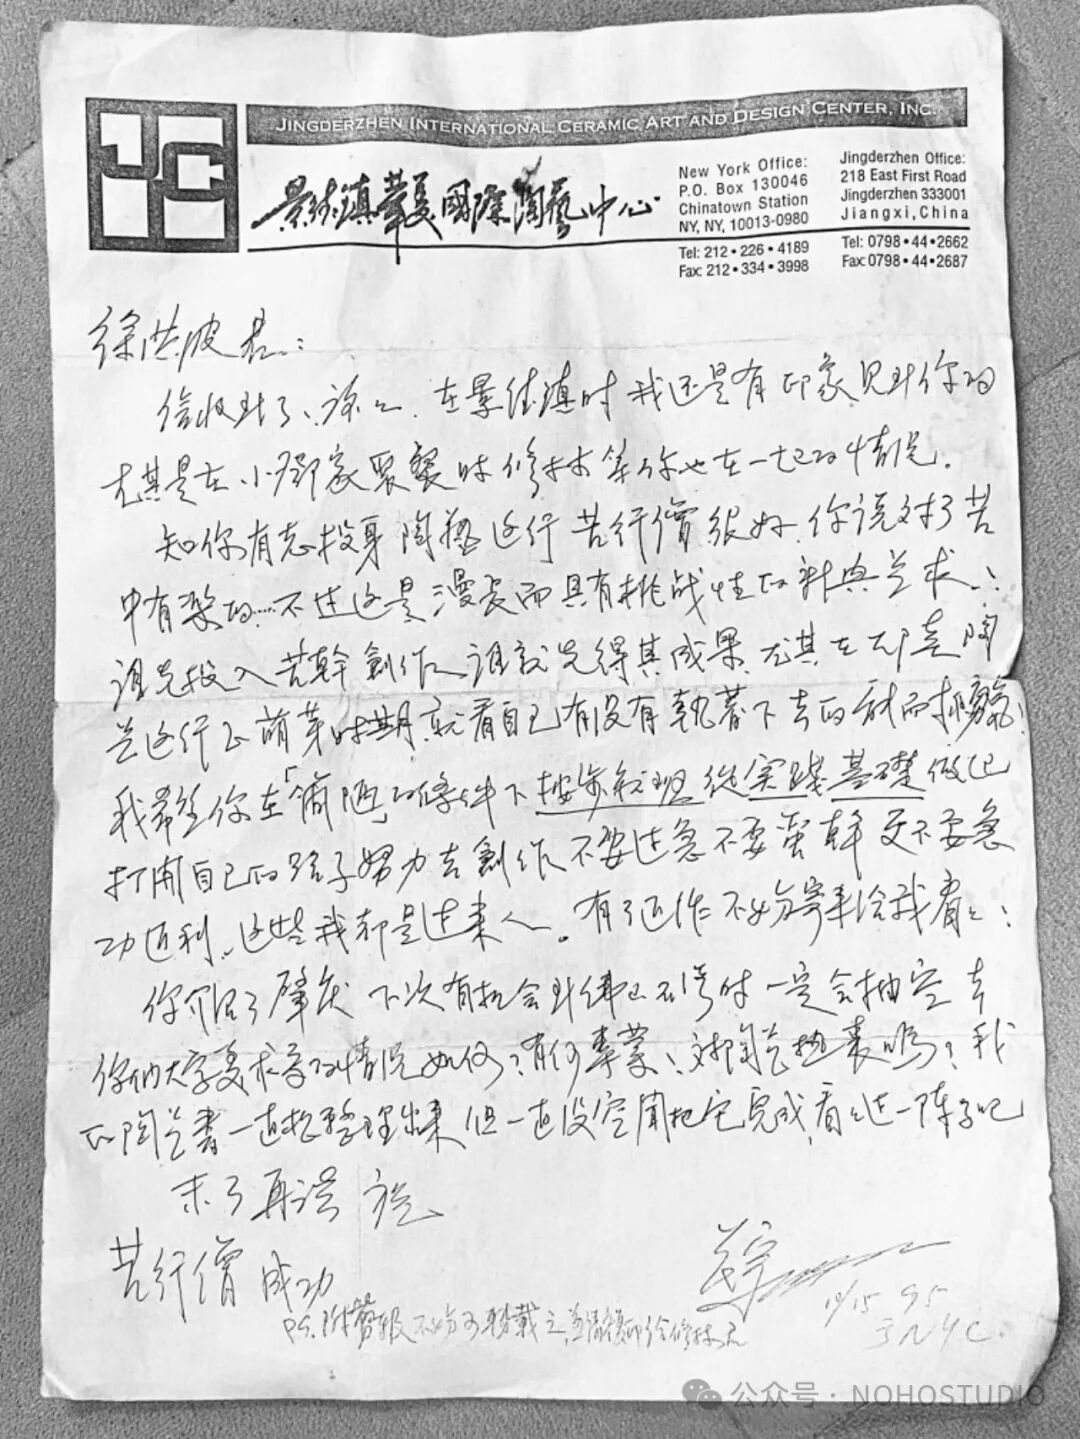 JINGDERZHEN INTERNATIONAL CERAMIC ART AND DESIGN CENTER, INC.
景德鎮華夏國際陶藝中心
New York Office:
P.O. Box 130046
Chinatown Station
NY, NY, 10013-0980
Tel: 212•226•4189
Fax: 212•334•3998
Jingderzhen Office:
218 East First Road
Jingderzhen 333001
Jiangxi, China
Tel: 0798•44•2662
Fax: 0798•44•2687
徐洪波君:
信收到了、谢谢. 在景德鎮时我还是有印象见到你的
尤其是在小鄧家聚餐时修林等你也在一起的情况.
知你有志投身陶藝这行苦行僧很好.你说对了苦
中有樂的…不过这是漫長而具有挑战性的新兴艺术
谁先投入苦幹創作谁就先得其成果.尤其在陶
艺这行正萌芽时期.就看自己有没有執著下去的勇氣
我希望你在「简陋」的條件下按步就班從实践基礎做起
打開自己的路子努力去創作不要过急不要蛮幹更不要急
功近利.这些我都是过来人。有了近作不妨寄来给我看看
你介绍了肇庆下次有机会到佛山石湾时一定会抽空去
你们大学美术系的情况如何?有何專業、对陶艺热衷吗?我
的陶艺書一直想整理出来但一直没空閒把它完成,看看过一阵子吧
末了再谈 祝
苦行僧成功
10/15 95
于NYC
PS.附剪报不妨可转載之,並请複印给修林君
公众号·NOHOSTUDIO